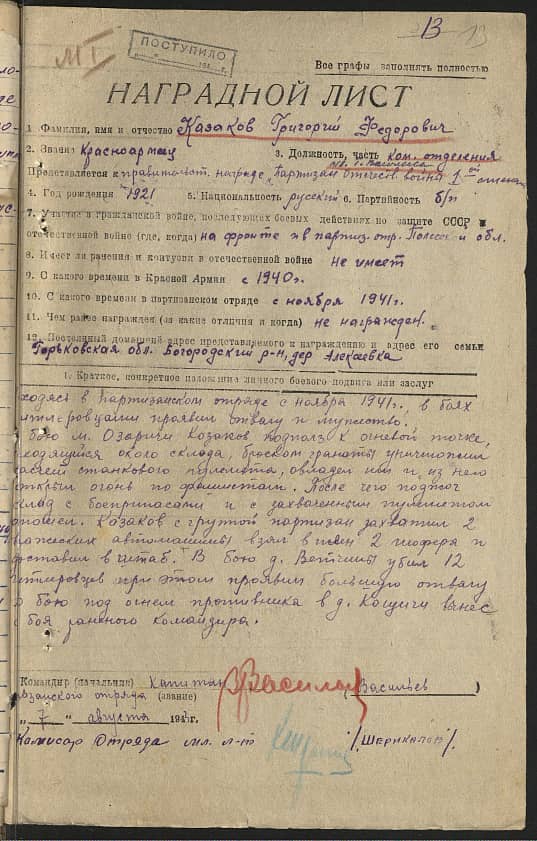 13 13
МТ
ПОСТУПИЛО
Все графы заполнять полностью
НАГРАДНОЙ ЛИСТ
1. Фамилия, имя и отчество Казаков Григорий Федорович
2. Звание Красноармеец 3. Должность, часть ком. отделения
п.о. т. Васильева
Представляется к правительст. награде „Партизан отечеств. война 1ой степени
4. Год рождения 1921 5. Национальность русский 6. Партийность б/п
7. Участие в гражданской войне, последующих боевых действиях по защите СССР и
отечественной войне (где, когда) на фронте и в партиз. отр. Полесск. обл.
8. Имеет ли ранения и контузии в отечественной войне не имеет
9. С какого времени в Красной Армии с 1940г.
10. С какого времени в партизанском отряде с ноября 1941г.
11. Чем ранее награжден (за какие отличия и когда) не награжден.
12. Постоянный домашний адрес представляемого к награждению и адрес его семьи
Горьковская обл. Богородский р-н, дер Алексеевка
1. Краткое, конкретное изложение личного боевого подвига или заслуг
ходясь в партизанском отряде с ноября 1941г., в боях
итлеровцами проявил отвагу и мужество.
бою м. Озаричи Казаков подполз к огневой точке,
ходящийся около склада, броском гранаты уничтожил
станкового пулемета, овладел им и из него
открыл огонь по фашистам. После чего поджог
склад с боеприпасами и с захваченным пулеметом
отошел. Казаков с группой партизан захватил 2
вражеских автомашины взял в плен 2 шофера и
доставил в штаб. В бою д. Ветчины убил 12
гитлеровцев при этом проявил большую отвагу
В бою под огнем противника в д. Кощичи вынес
с боя раненого командира.
Командир (начальник) Капитан Васильев (Васильев)
изанского отряда (звание)
„7" августа 194 г.
Комиссар Отряда мл. л-т /Шерикалов/